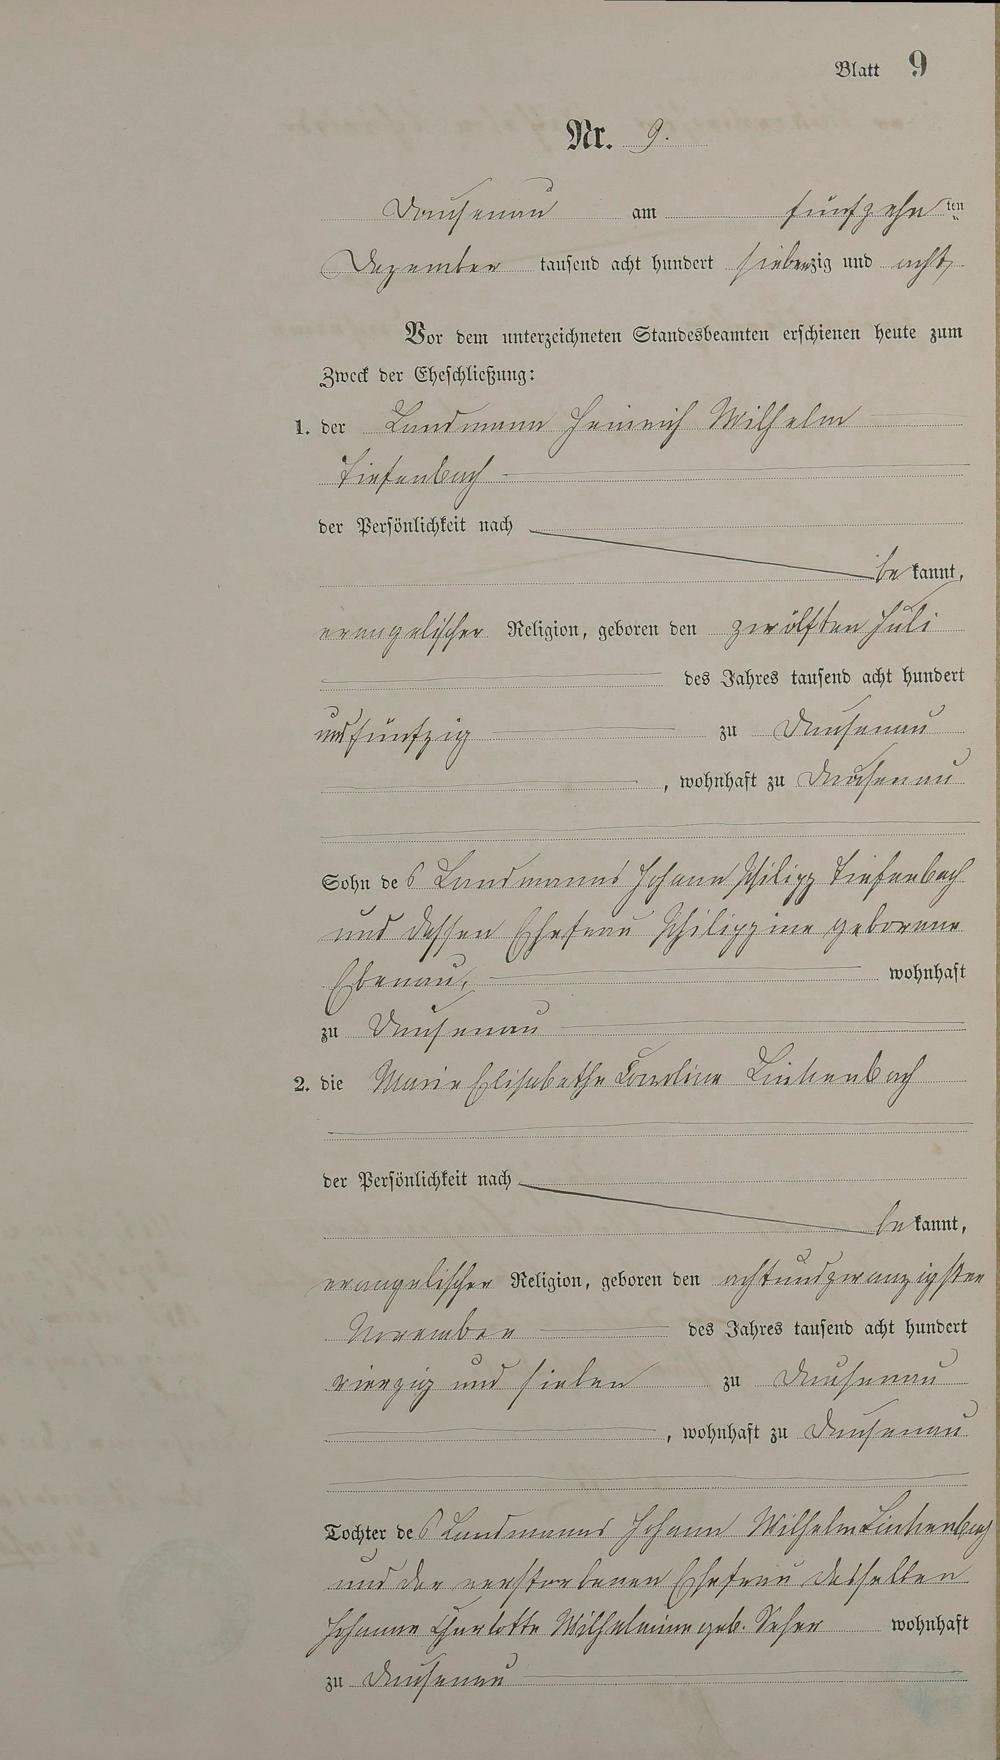 Blatt 9
Nr. 9.
Dausenau am fünfzehn ten
Dezember tausend acht hundert siebenzig und acht
Vor dem unterzeichneten Standesbeamten erschienen heute zum
Zweck der Eheschließung:
1. der Landmann Heinrich Wilhelm
Tiefenbach
der Persönlichkeit nach
be kannt,
evangelischer Religion, geboren den zwölften Juli
des Jahres tausend acht hundert
undfünfzig zu Dausenau
, wohnhaft zu Dausenau
Sohn des Landmanns Johann Philipp Tiefenbach
und dessen Ehefrau Philippine geborene
Ebenau, wohnhaft
zu Dausenau
2. die Marie Elisabethe Caroline Linkenbach
der Persönlichkeit nach
be kannt,
evangelischer Religion, geboren den achtundzwanzigsten
November des Jahres tausend acht hundert
vierzig und sieben zu Dausenau
, wohnhaft zu Dausenau
Tochter des Landmanns Johann Wilhelm Linkenbach
und der verstorbenen Ehefrau desselben
Johanne Charlotte Wilhelmine geb. wohnhaft
zu Dausenau